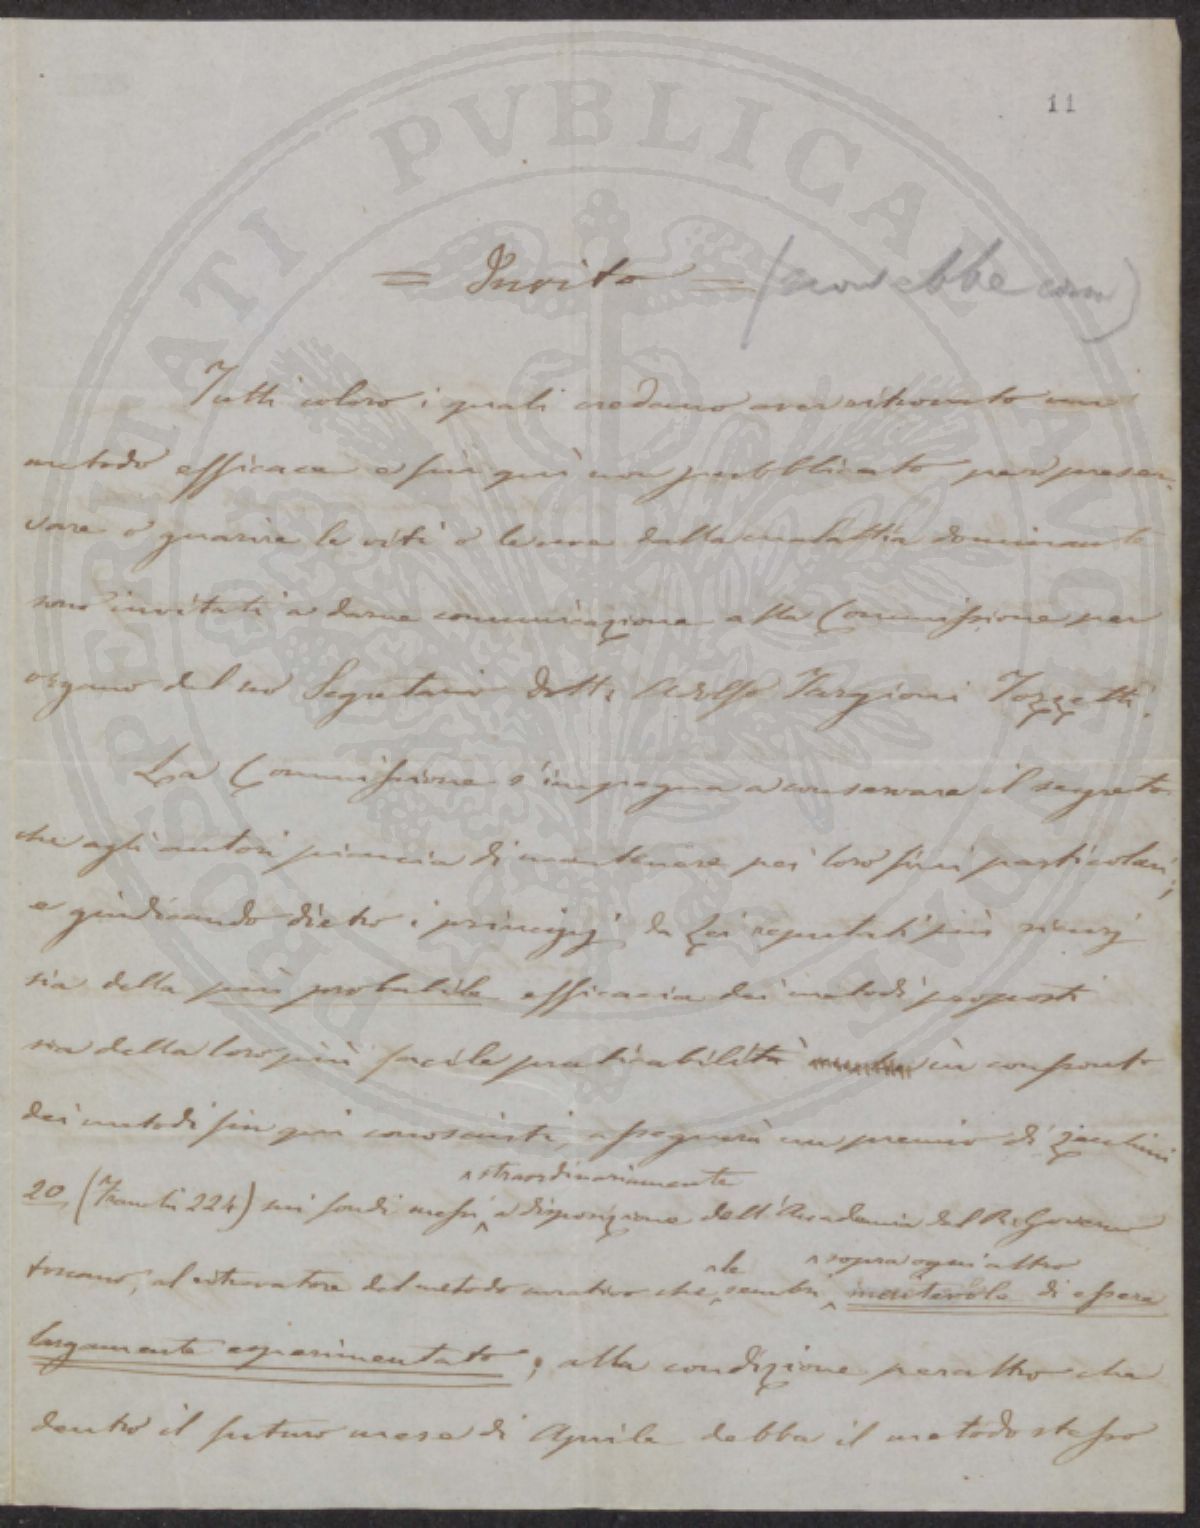 11
= Invito =
Tutti coloro i quali credano aver ritrovato un
metodo efficace e fin quì non pubblicato per preser-
vare o guarire le viti e le uve dalla malattia dominante
sono invitati a darne comunicazione alla Commissione per
organo del suo Segretario Dott. Adolfo Targioni Tozzetti.
La Commissione s'impegna a conservare il segreto
che agli autori piaccia di mantenere pei loro fini particolari;
e giudicando dietro i principj da Lei reputati più sicuri
sia della più probabile efficacia dei metodi proposti
sia della loro più facile praticabilità in confronto
dei metodi fin qui conosciuti, assegnerà un premio di Zecchini
straordinariamente
20, (Franchi 224) sui fondi messi a disposizione dell'Accademia dal R. Governo
le sopra ogni altro
toscano, al ritrovatore del metodo curativo che sembri meritevole di essere
largamente esperimentato; alla condizione peraltro che
dentro il futuro mese di Aprile debba il metodo stesso
PROSPERITATI PVBLICAE AVGENDAE